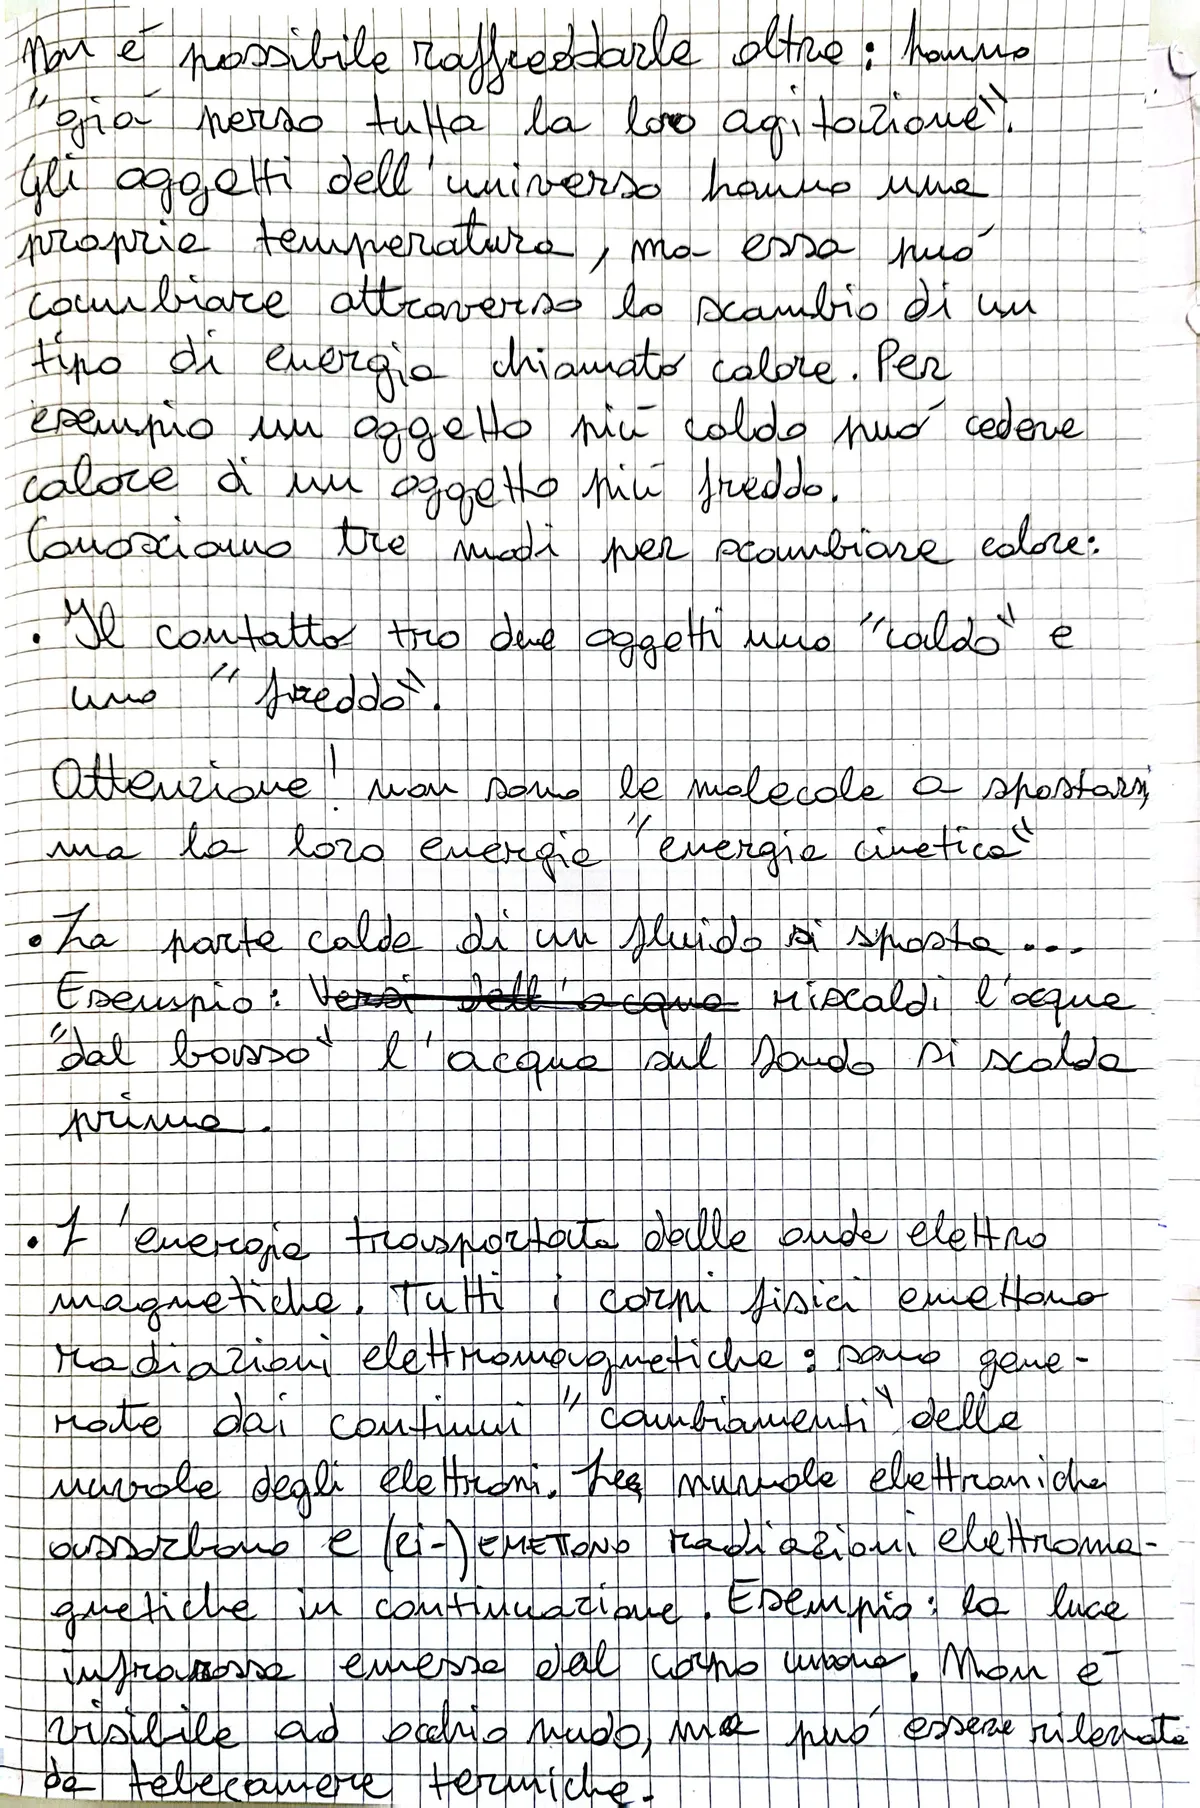 Non é possibile raffreddarle oltre: hanno
"giá perso tutta la loro agitazione".
Gli oggetti dell'universo hanno una
propria temperatura, ma essa puó
cambiare attraverso lo scambio di un
tipo di energia chiamato calore. Per
esempio un oggetto piú caldo puó cedere
calore di un oggetto piú freddo.
Conosciamo tre modi per scambiare calore:
• Il contatto tra due oggetti uno "caldo" e
uno "freddo".
Attenzione! non sono le molecole a spostarsi,
ma la loro energia "energia cinetica"
• La parte calda di un fluido si sposta ...
Esempio: Versi dell'acqua riscaldi l'acqua
"dal basso" l'acqua sul fondo si scalda
prima.
• L'energia trasportata dalle onde elettro
magnetiche. Tutti i corpi fisici emettono
radiazioni elettromagnetiche: sono gene-
rate dai continui "cambiamenti" delle
nuvole degli elettroni. Le nuvole elettroniche
assorbono e (ri-)EMETTONO radiazioni elettroma-
gnetiche in continuazione. Esempio: la luce
infrarossa emessa dal corpo umano. Non é
visibile ad occhio nudo, ma puó essere rilevata
da telecamere termiche.